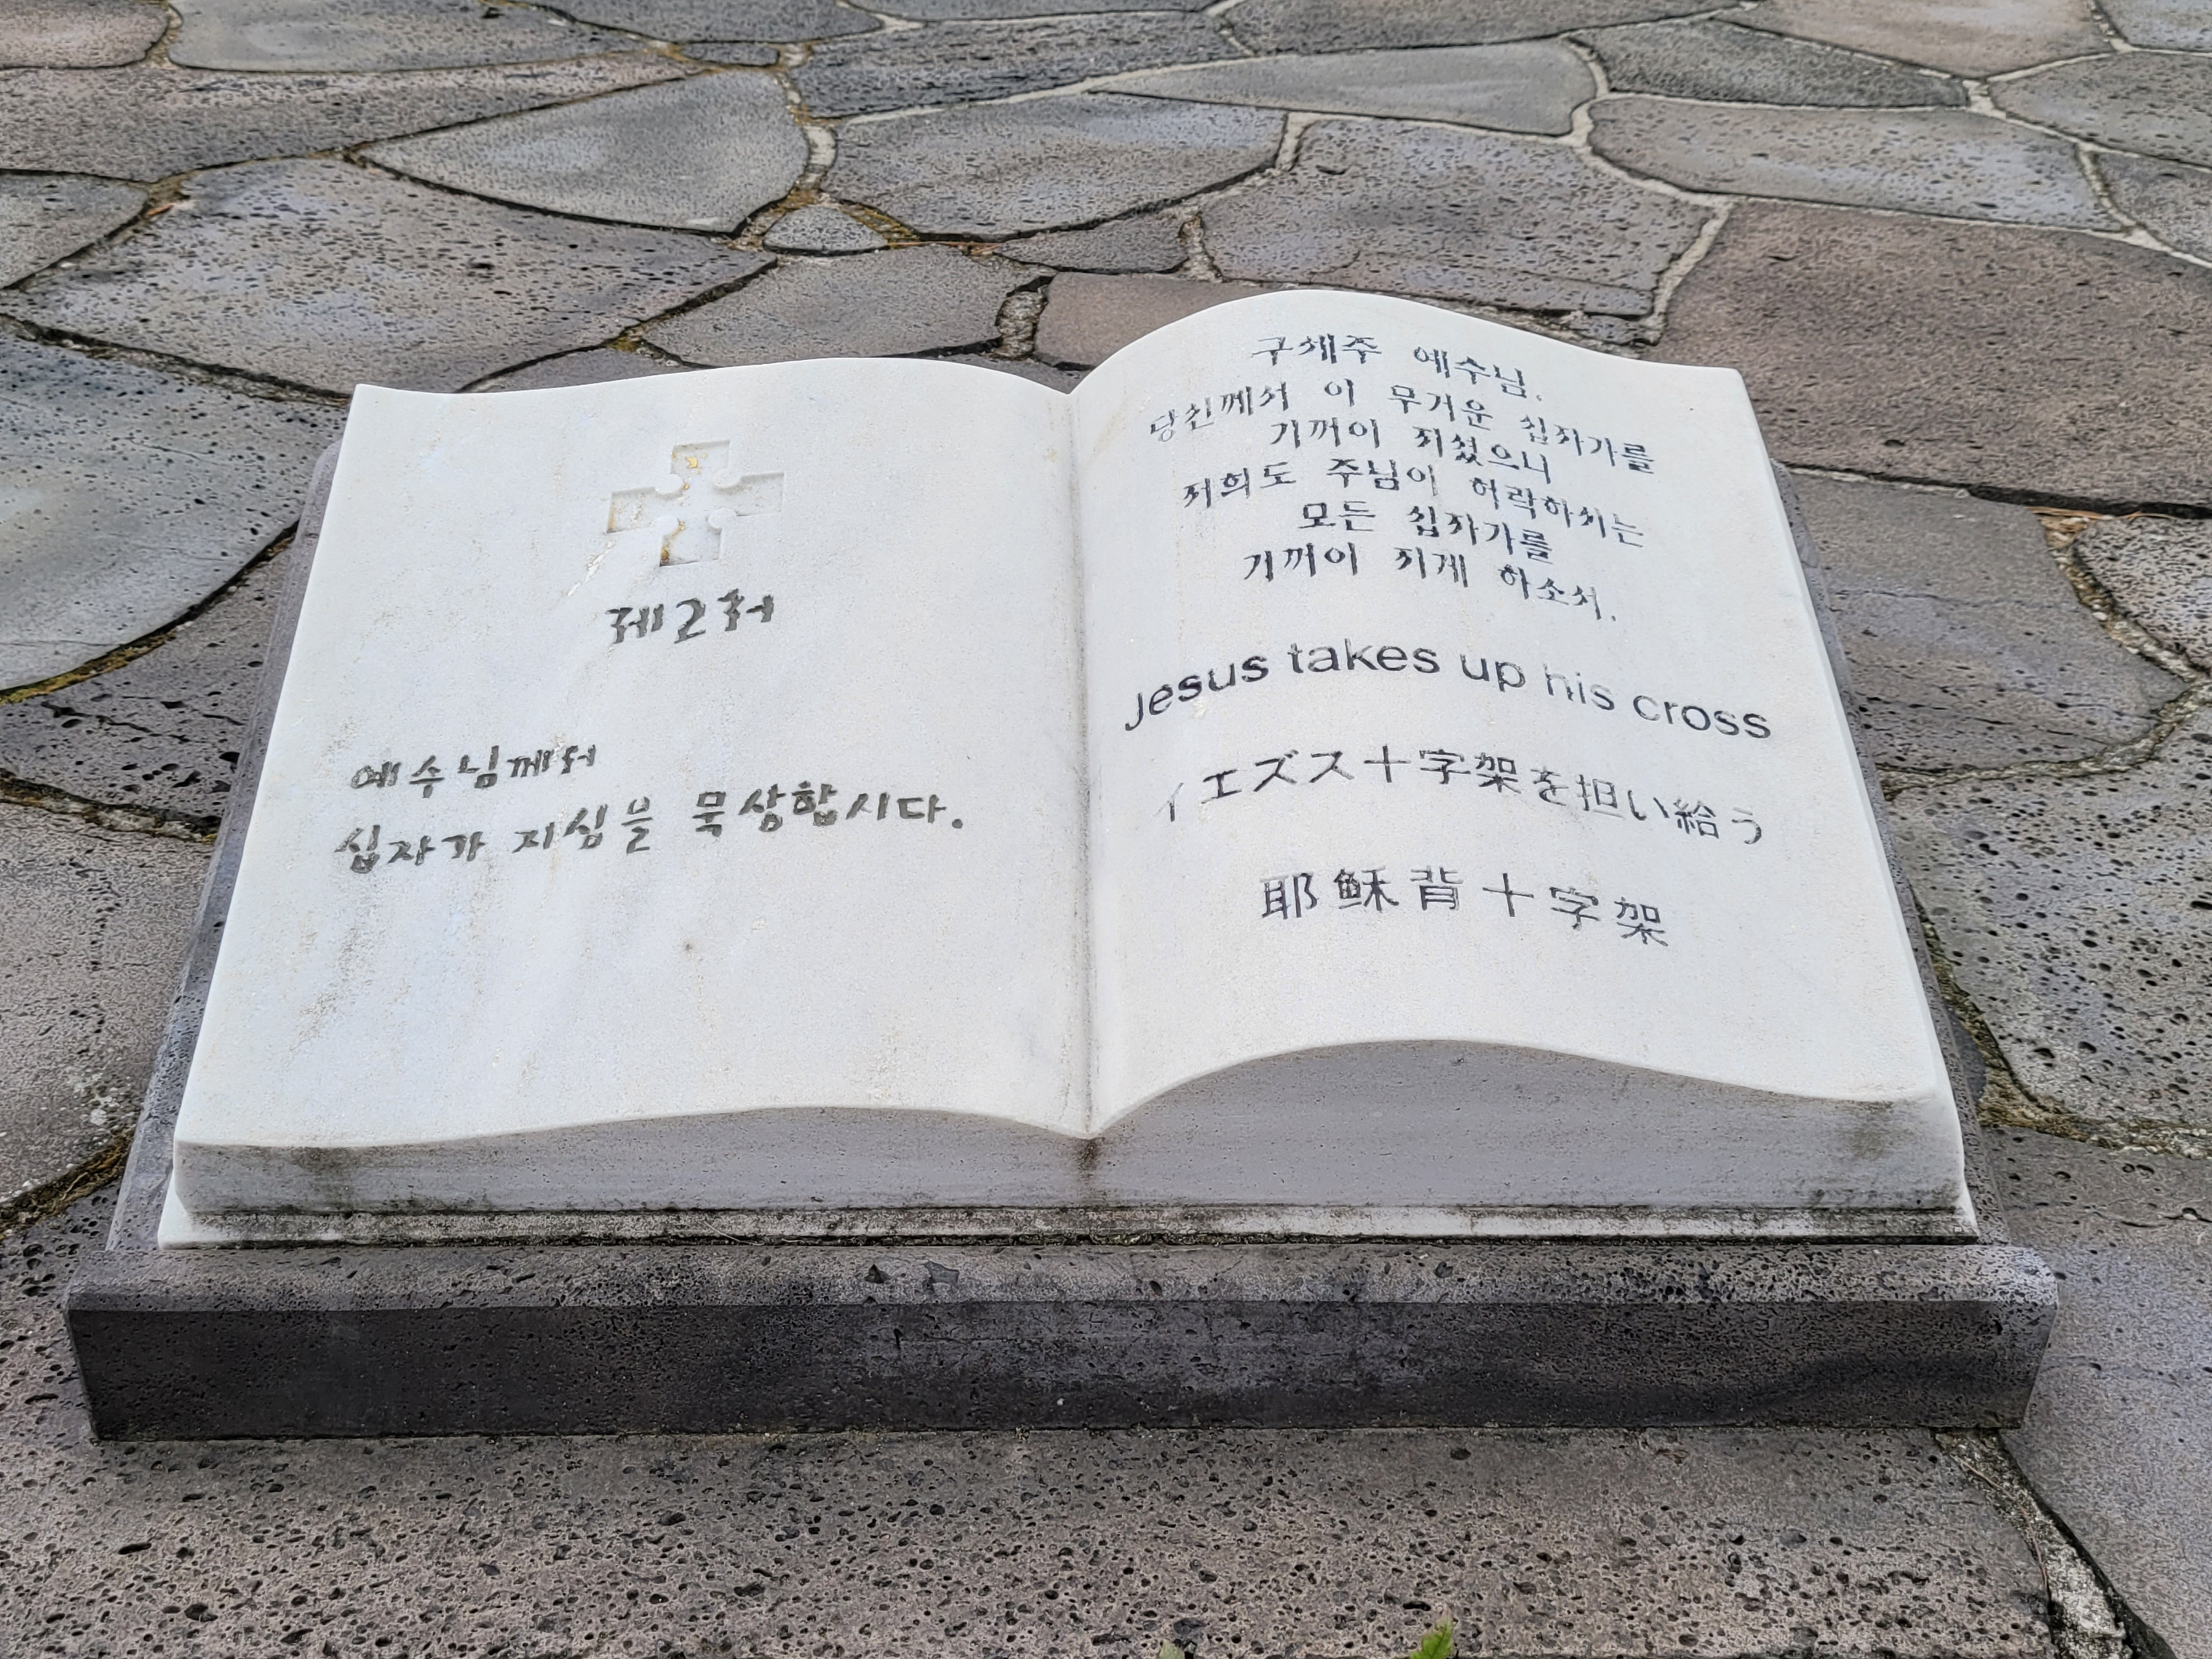 제2처
예수님께서
십자가 지심을 묵상합시다.
구세주 예수님.
당신께서 이 무거운 십자가를
기꺼이 지셨으니
저희도 주님이 허락하시는
모든 십자가를
기꺼이 지게 하소서.
Jesus takes up his cross
イエズス十字架を担い給う
耶稣背十字架